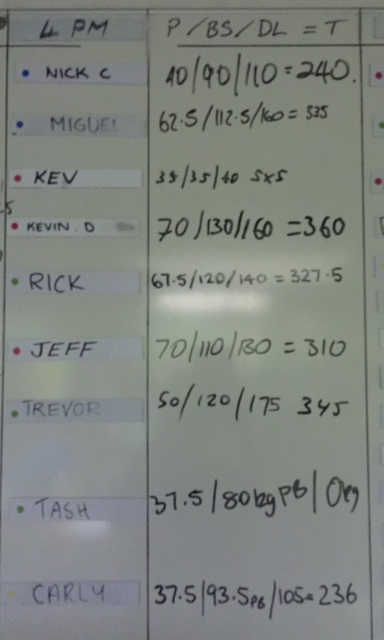 4 PM P/BS/DL = T
• NICK C 40/90/110 = 240.
• MIGUEL 62.5/112.5/160 = 335
• KEV 35/35/40 5x5
• KEVIN. D 70/130/160 = 360
• RICK 67.5/120/140 = 327.5
• JEFF 70/110/130 = 310
• TREVOR 50/120/175 345
• TASH 37.5/80kg PB/0kg
• CARLY 37.5/93.5PB/105 = 236